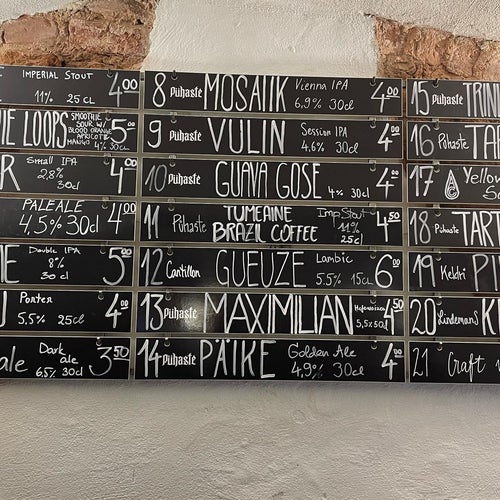 IMPERIAL STOUT
11% 25 cl 4.00
IE LOOPS SMOOTHIE SOUR W/ BLOOD ORANGE APRICOT MANGO 4% 30cl 5.00
R Small IPA 2,8% 30cl 4.00
PALE ALE
4,5% 30cl 4.00
E Double IPA 8% 30 cl 5.00
U Porter 5,5% 25cl 4.00
ale Dark ale 6,5% 30cl 3.50
8 PÜHASTE MOSAIIK Vienna IPA 6,9% 30cl 4.00
9 PÜHASTE VULIN Session IPA 4,6% 30cl 4.00
10 PÜHASTE GUAVA GOSE 4% 30cl 4.00
11 PÜHASTE TUMEAINE BRAZIL COFFEE Imp Stout 11% 25cl 4.50
12 Cantillon GUEUZE Lambic 5.5% 15cl 6.00
13 PÜHASTE MAXIMILIAN 5,5% 50cl 4.50
14 PÜHASTE PÄIKE Golden Ale 4,9% 30cl 4.00
15 PÜHASTE TRIN
16 PÜHASTE TAR
17 Yellow S
18 PÜHASTE TART
19 Kehkri PI
20 Lindemans K
21 Craft